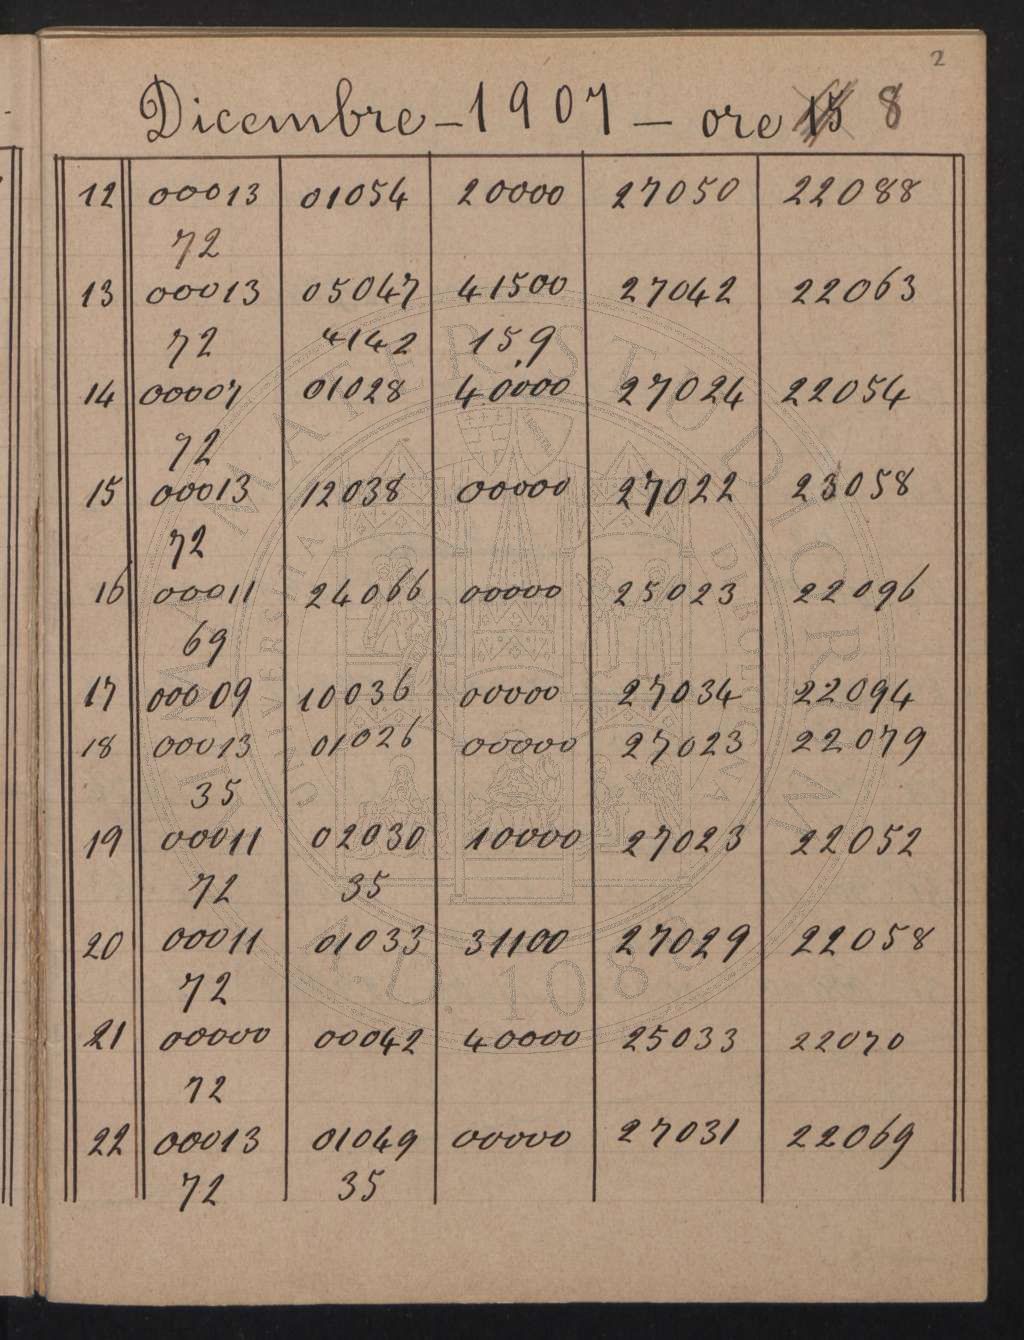 2
Dicembre - 1907 - ore 15 8
12 00013 01054 20000 27050 22088
72
13 00013 05047 41500 27042 22063
72 4142 15,9
14 00007 01028 40000 27024 22054
72
15 00013 12038 00000 27022 23058
72
16 00011 24066 00000 25023 22096
69
17 00009 10036 00000 27034 22094
18 00013 01026 00000 27023 22079
35
19 00011 02030 10000 27023 22052
72 35
20 00011 01033 31100 27029 22058
72
21 00000 00042 40000 25033 22070
72
22 00013 01049 00000 27031 22069
72 35
ALMA MATER STUDIORUM
UNIVERSITÀ DI BOLOGNA
A.D. 1088